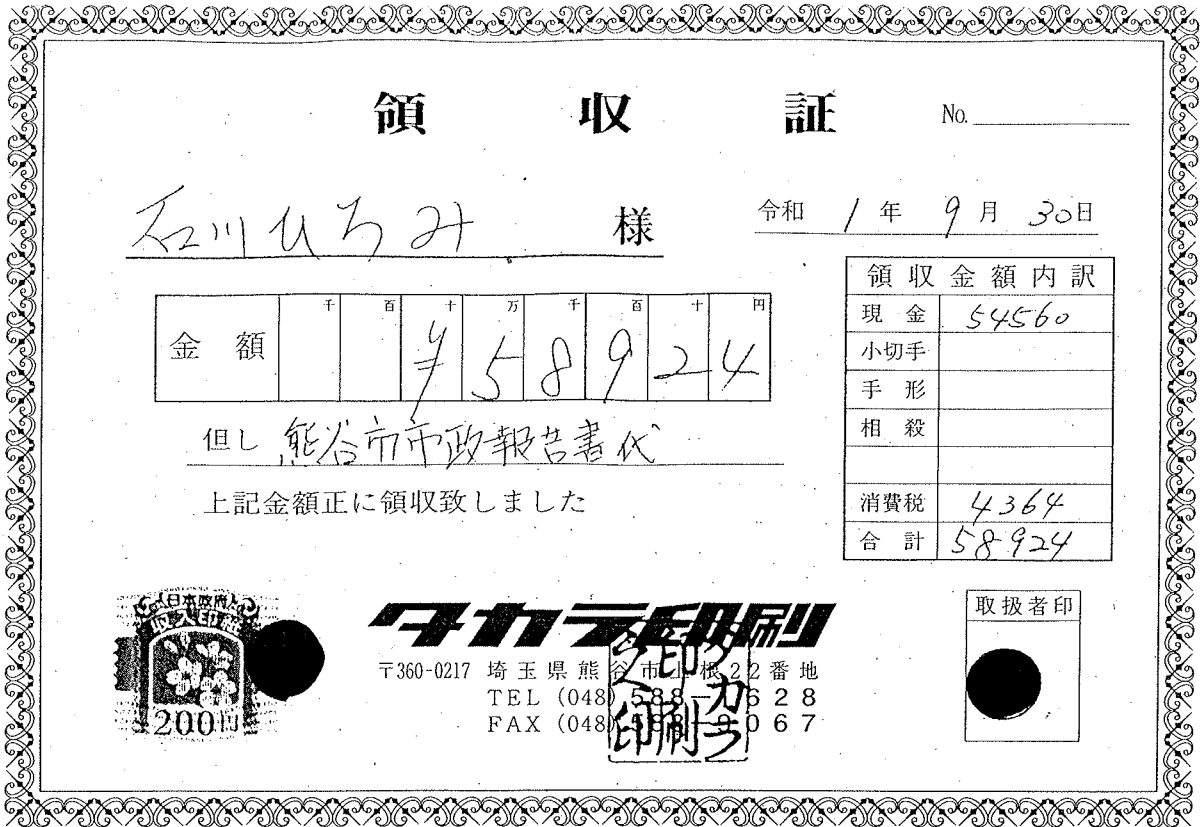 領収証 No.
石川ひろみ 様
令和 1年 9月 30日
金額 千 百 十 万 千 百 十 円
¥58924
但し 熊谷市市政報告書代
上記金額正に領収致しました
領収金額内訳
現金 54560
小切手
手形
相殺
消費税 4364
合計 58924
日本政府
収入印紙
200円
タカラ印刷
〒360-0217 埼玉県熊谷市 根22番地
TEL (048) 588- 628
FAX (048) 588- 067
タカラ印刷之印
取扱者印